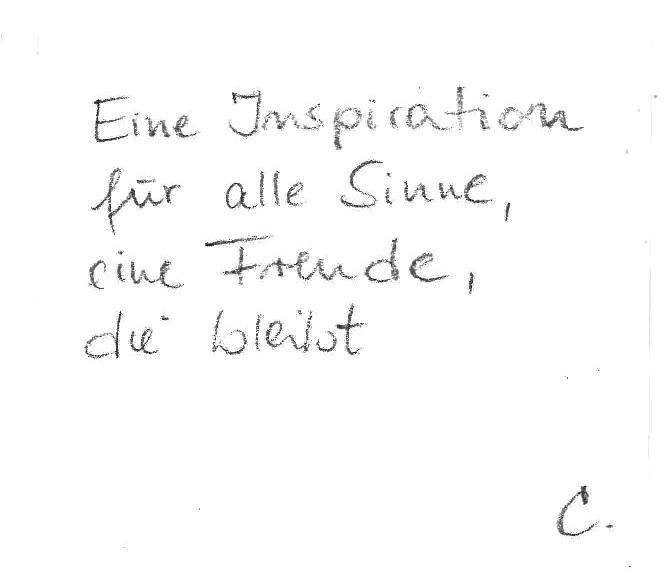 Eine Inspiration
für alle Sinne,
eine Freude,
die bleibt
C.